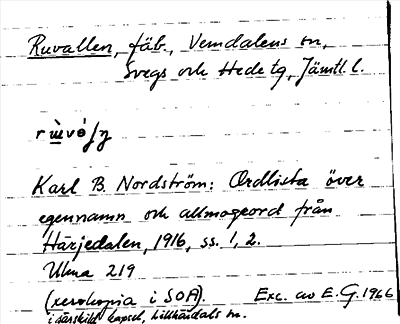 Ruvallen, fäb., Vemdalens sn,
Svegs och Hede tg, Jämtl. l.
Karl B. Nordström: Ordlista över
egennamn och allmogeord från
Härjedalen, 1916, ss. 1, 2.
Ulma 219
(xerokopia i SOA). Exc. av E.G. 1966
i särskild kapsel, Lillhärdals sn.